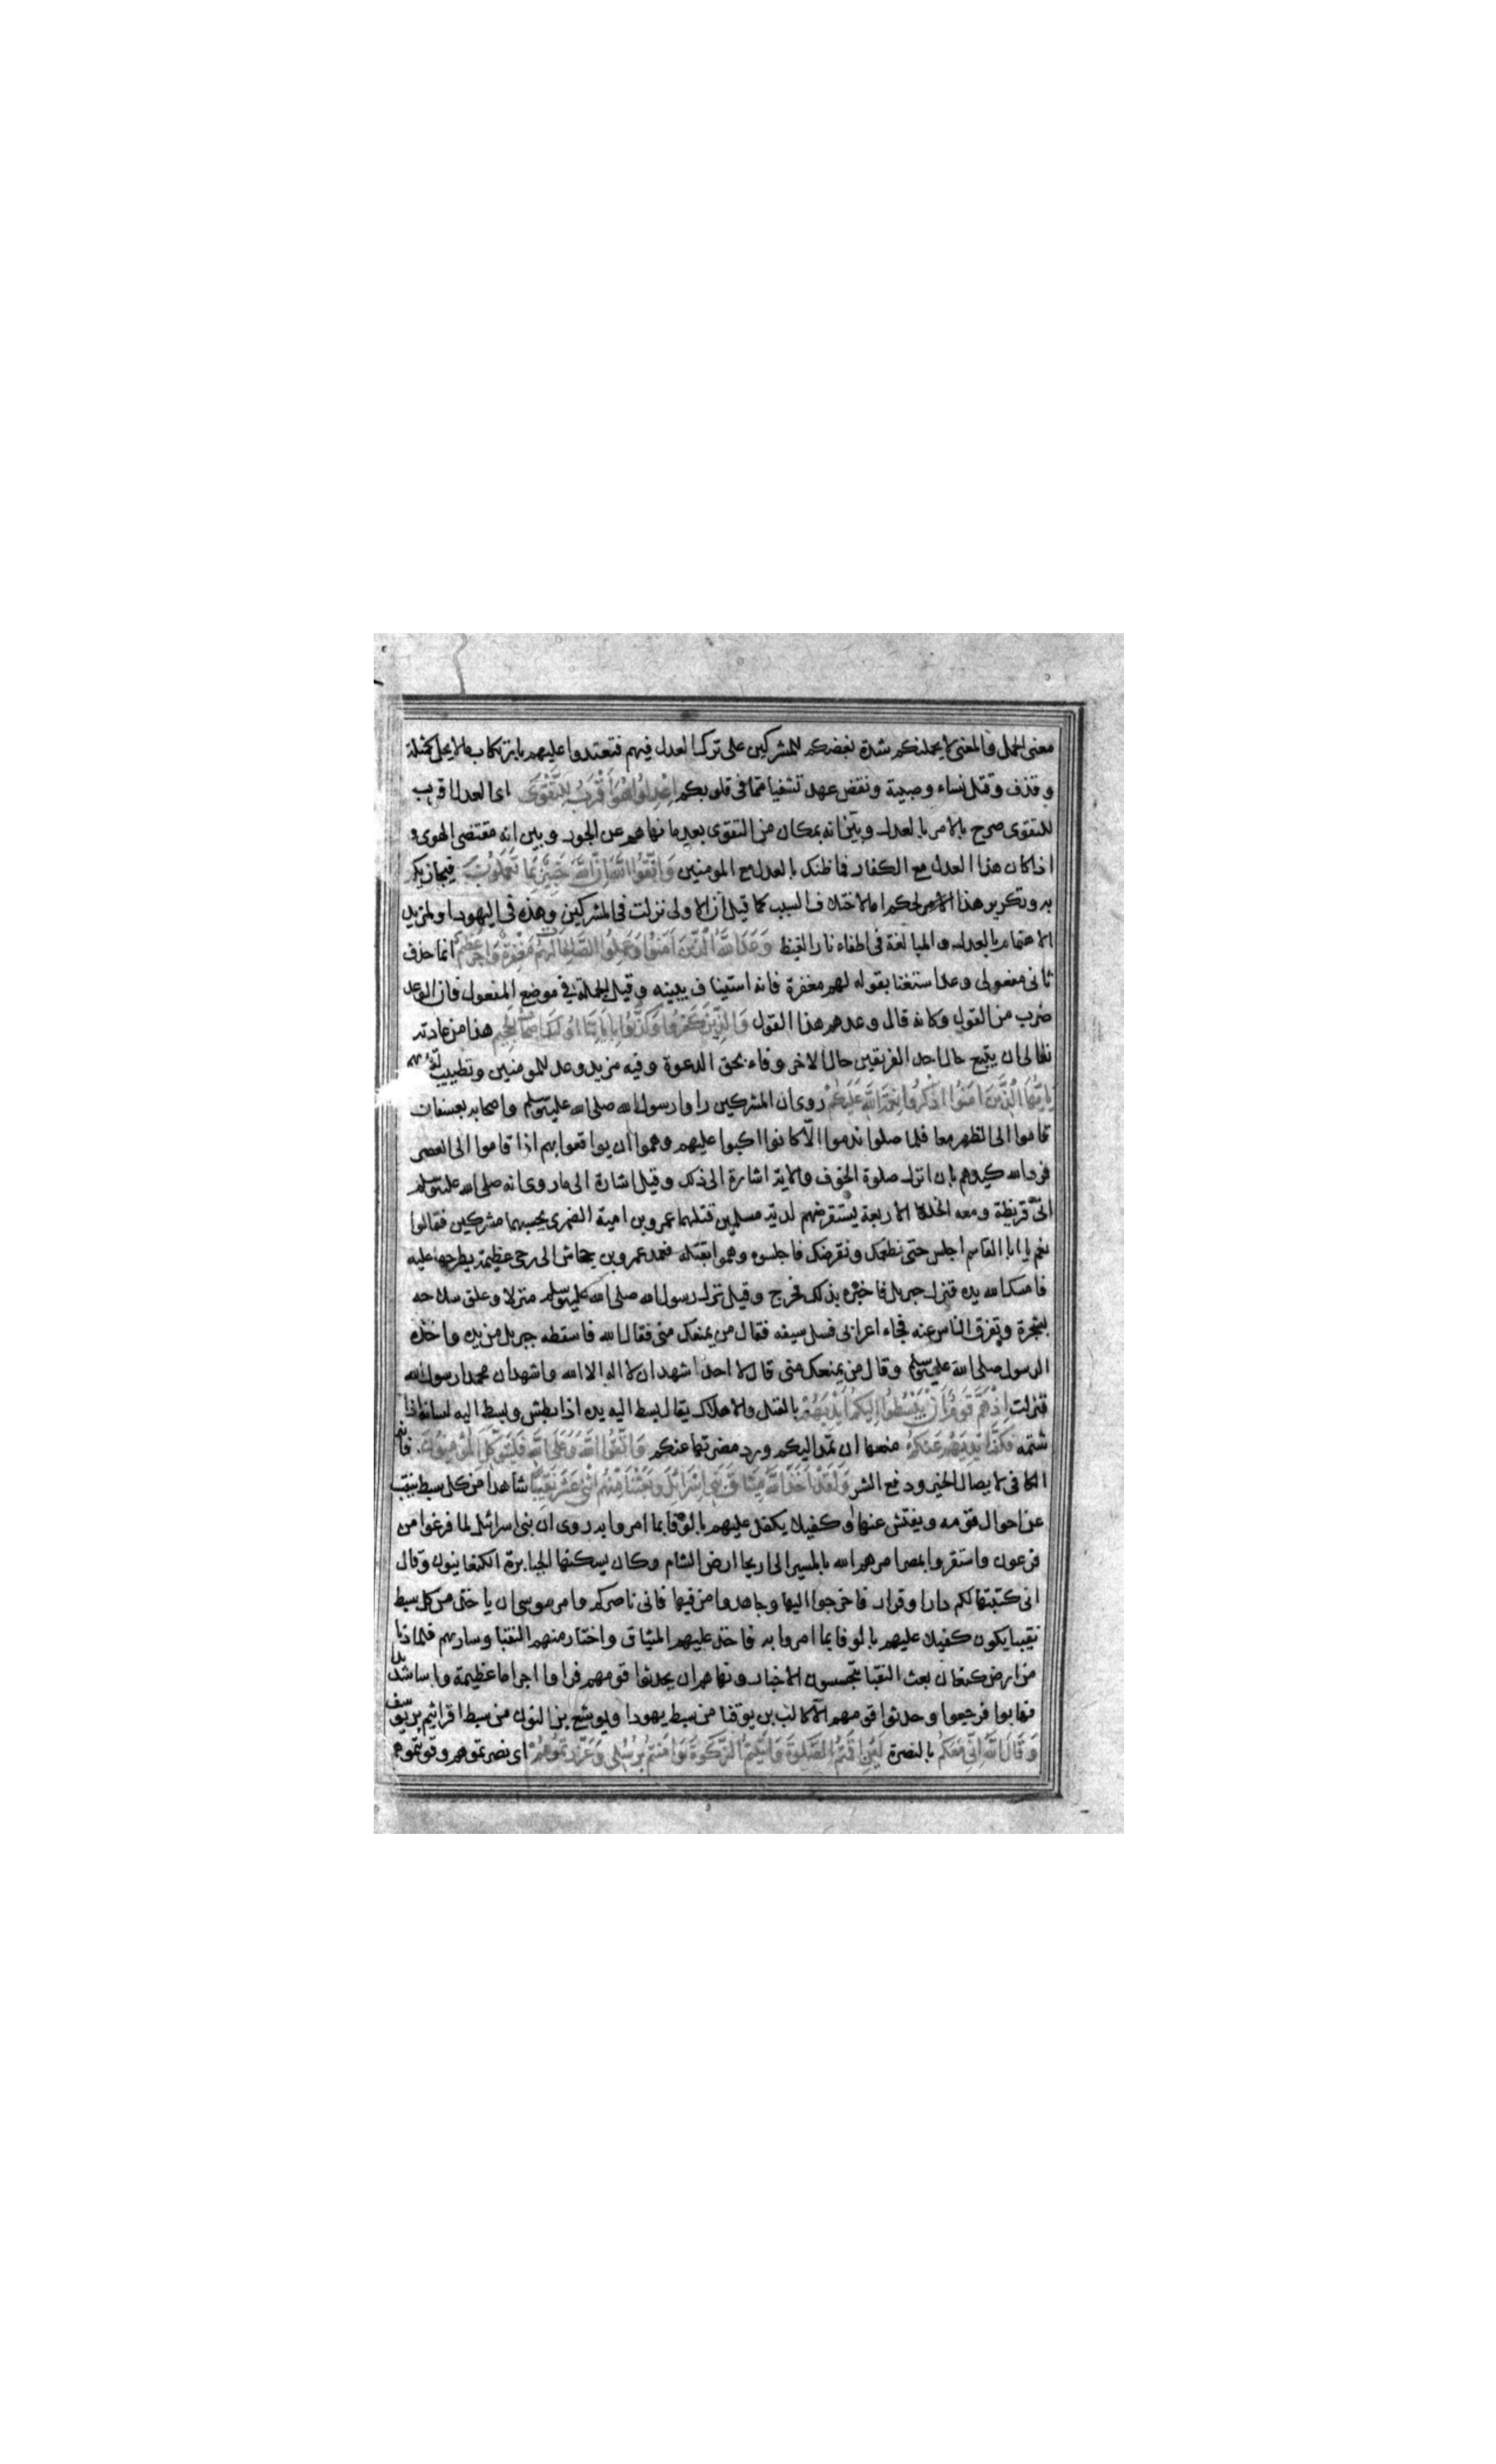 معنى الحمل فالمعنى لا يحملنكم شدة بغضكم للمشركين على ترك العدل فيهم فتعتدوا عليهم بارتكاب ما لا يحل كمثلة
وقذف وقتل نساء وصبية ونقض عهد تشفيا مما فى قلوبكم اِعْدِلُوا هُوَ اَقْرَبُ لِلتَّقْوَى اى العدل اقرب
للتقوى صرح بالامر بالعدل وبين انه بمكان من التقوى بعد ما نهاهم عن الجور وبين انه مقتضى الهوى و
اذا كان هذا العدل مع الكفار فما ظنك بالعدل مع المومنين وَاتَّقُوا اللهَ اِنَّ اللهَ خَبِيرٌ بِمَا تَعْمَلُونَ فيجازيكم
به وتكرير هذا الامر لحكم اما لاختلاف السبب كما قيل ان الاولى نزلت فى المشركين وهذه فى اليهود او لمزيد
الاهتمام بالعدل والمبالغة فى اطفاء نار الغيظ وَعَدَ اللهُ الَّذِينَ اٰمَنُوا وَعَمِلُوا الصَّالِحَاتِ لَهُمْ مَغْفِرَةٌ وَاَجْرٌ عَظِيمٌ انما حذف
ثانى مفعولى وعد استغنا بقوله لهم مغفرة فانه استيناف يبينه وقيل الجملة فى موضع المفعول فان الوعد
ضرب من القول وكانه قال وعدهم هذا القول وَالَّذِينَ كَفَرُوا وَكَذَّبُوا بِاٰيَاتِنَا اُولٰئِكَ اَصْحَابُ الْجَحِيمِ هذا من عادته
تعالى ان يتبع حال احد الفريقين حال الاخر وفاء بحق الدعوة وفيه مزيد وعد للمومنين وتطييب لقلوبهم
يَا اَيُّهَا الَّذِينَ اٰمَنُوا اذْكُرُوا نِعْمَتَ اللهِ عَلَيْكُمْ روى ان المشركين راوا رسول الله صلى الله عليه وسلم واصحابه بعسفان
قاموا الى الظهر معا فلما صلوا ندموا الّا كانوا اكبوا عليهم وهموا ان يوقعوا بهم اذا قاموا الى العصر
فرد الله كيدهم بان انزل صلوة الخوف والاية اشارة الى ذلك وقيل اشارة الى ما روى انه صلى الله عليه وسلم
اتى قريظة ومعه الخلفا الاربعة يستقرضهم لدية مسلمين قتلهما عمرو بن امية الضمرى يحسبهما مشركين فقالوا
نعم يا ابا القاسم اجلس حتى نطعمك ونقرضك فاجلسوه وهموا بقتله فعمد عمرو بن جحاش الى رحى عظيمة يطرحها عليه
فامسك الله يده فنزل جبريل فاخبره بذلك فخرج وقيل نزل رسول الله صلى الله عليه وسلم منزلا وعلق سلاحه
بشجرة وتفرق الناس عنه فجاء اعرابى فسل سيفه فقال من يمنعك منى فقال الله فاسقطه جبريل من يده واخذه
الرسول صلى الله عليه وسلم وقال من يمنعك منى قال لا احد اشهد ان لا اله الا الله واشهد ان محمدا رسول الله
فنزلت اِذْ هَمَّ قَوْمٌ اَنْ يَبْسُطُوا اِلَيْكُمْ اَيْدِيَهُمْ بالقتل والاهلاك يقال بسط اليه يده اذا بطش وبسط اليه لسانه اذا
شتمه فَكَفَّ اَيْدِيَهُمْ عَنْكُمْ منعها ان تمد اليكم ورد مضرتها عنكم وَاتَّقُوا اللهَ وَعَلَى اللهِ فَلْيَتَوَكَّلِ الْمُؤْمِنُونَ فانه
الكافى لايصال الخير ودفع الشر وَلَقَدْ اَخَذَ اللهُ مِيثَاقَ بَنِى اِسْرَائِلَ وَبَعَثْنَا مِنْهُمُ اثْنَىْ عَشَرَ نَقِيبًا شاهدا من كل سبط ينقب
عن احوال قومه ويفتش عنها او كفيلا يكفل عليهم بالوفا بما امروا به روى ان بنى اسرائيل لما فرغوا من
فرعون واستقروا بمصر امرهم الله بالمسير الى اريحا ارض الشام وكان يسكنها الجبابرة الكنعانيون وقال
انى كتبتها لكم دارا وقرار فاخرجوا اليها وجاهدوا من فيها فانى ناصركم وامر موسى ان ياخذ من كل سبط
نقيبا يكون كفيلا عليهم بالوفا بما امروا به فاخذ عليهم الميثاق واختار منهم النقبا وسار بهم فلما دنا
من ارض كنعان بعث النقبا يتجسسون الاخبار ونهاهم ان يحدثوا قومهم فراوا اجراما عظيمة وباسا شديدا
فهابوا فرجعوا وحدثوا قومهم الا كالب بن يوقنا من سبط يهودا ويوشع بن النون من سبط افرائيم بن يوسف
وَقَالَ اللهُ اِنِّى مَعَكُمْ بالنصرة لَئِنْ اَقَمْتُمُ الصَّلٰوةَ وَاٰتَيْتُمُ الزَّكٰوةَ وَاٰمَنْتُمْ بِرُسُلِى وَعَزَّرْتُمُوهُمْ اى نصرتموهم وقويتموهم